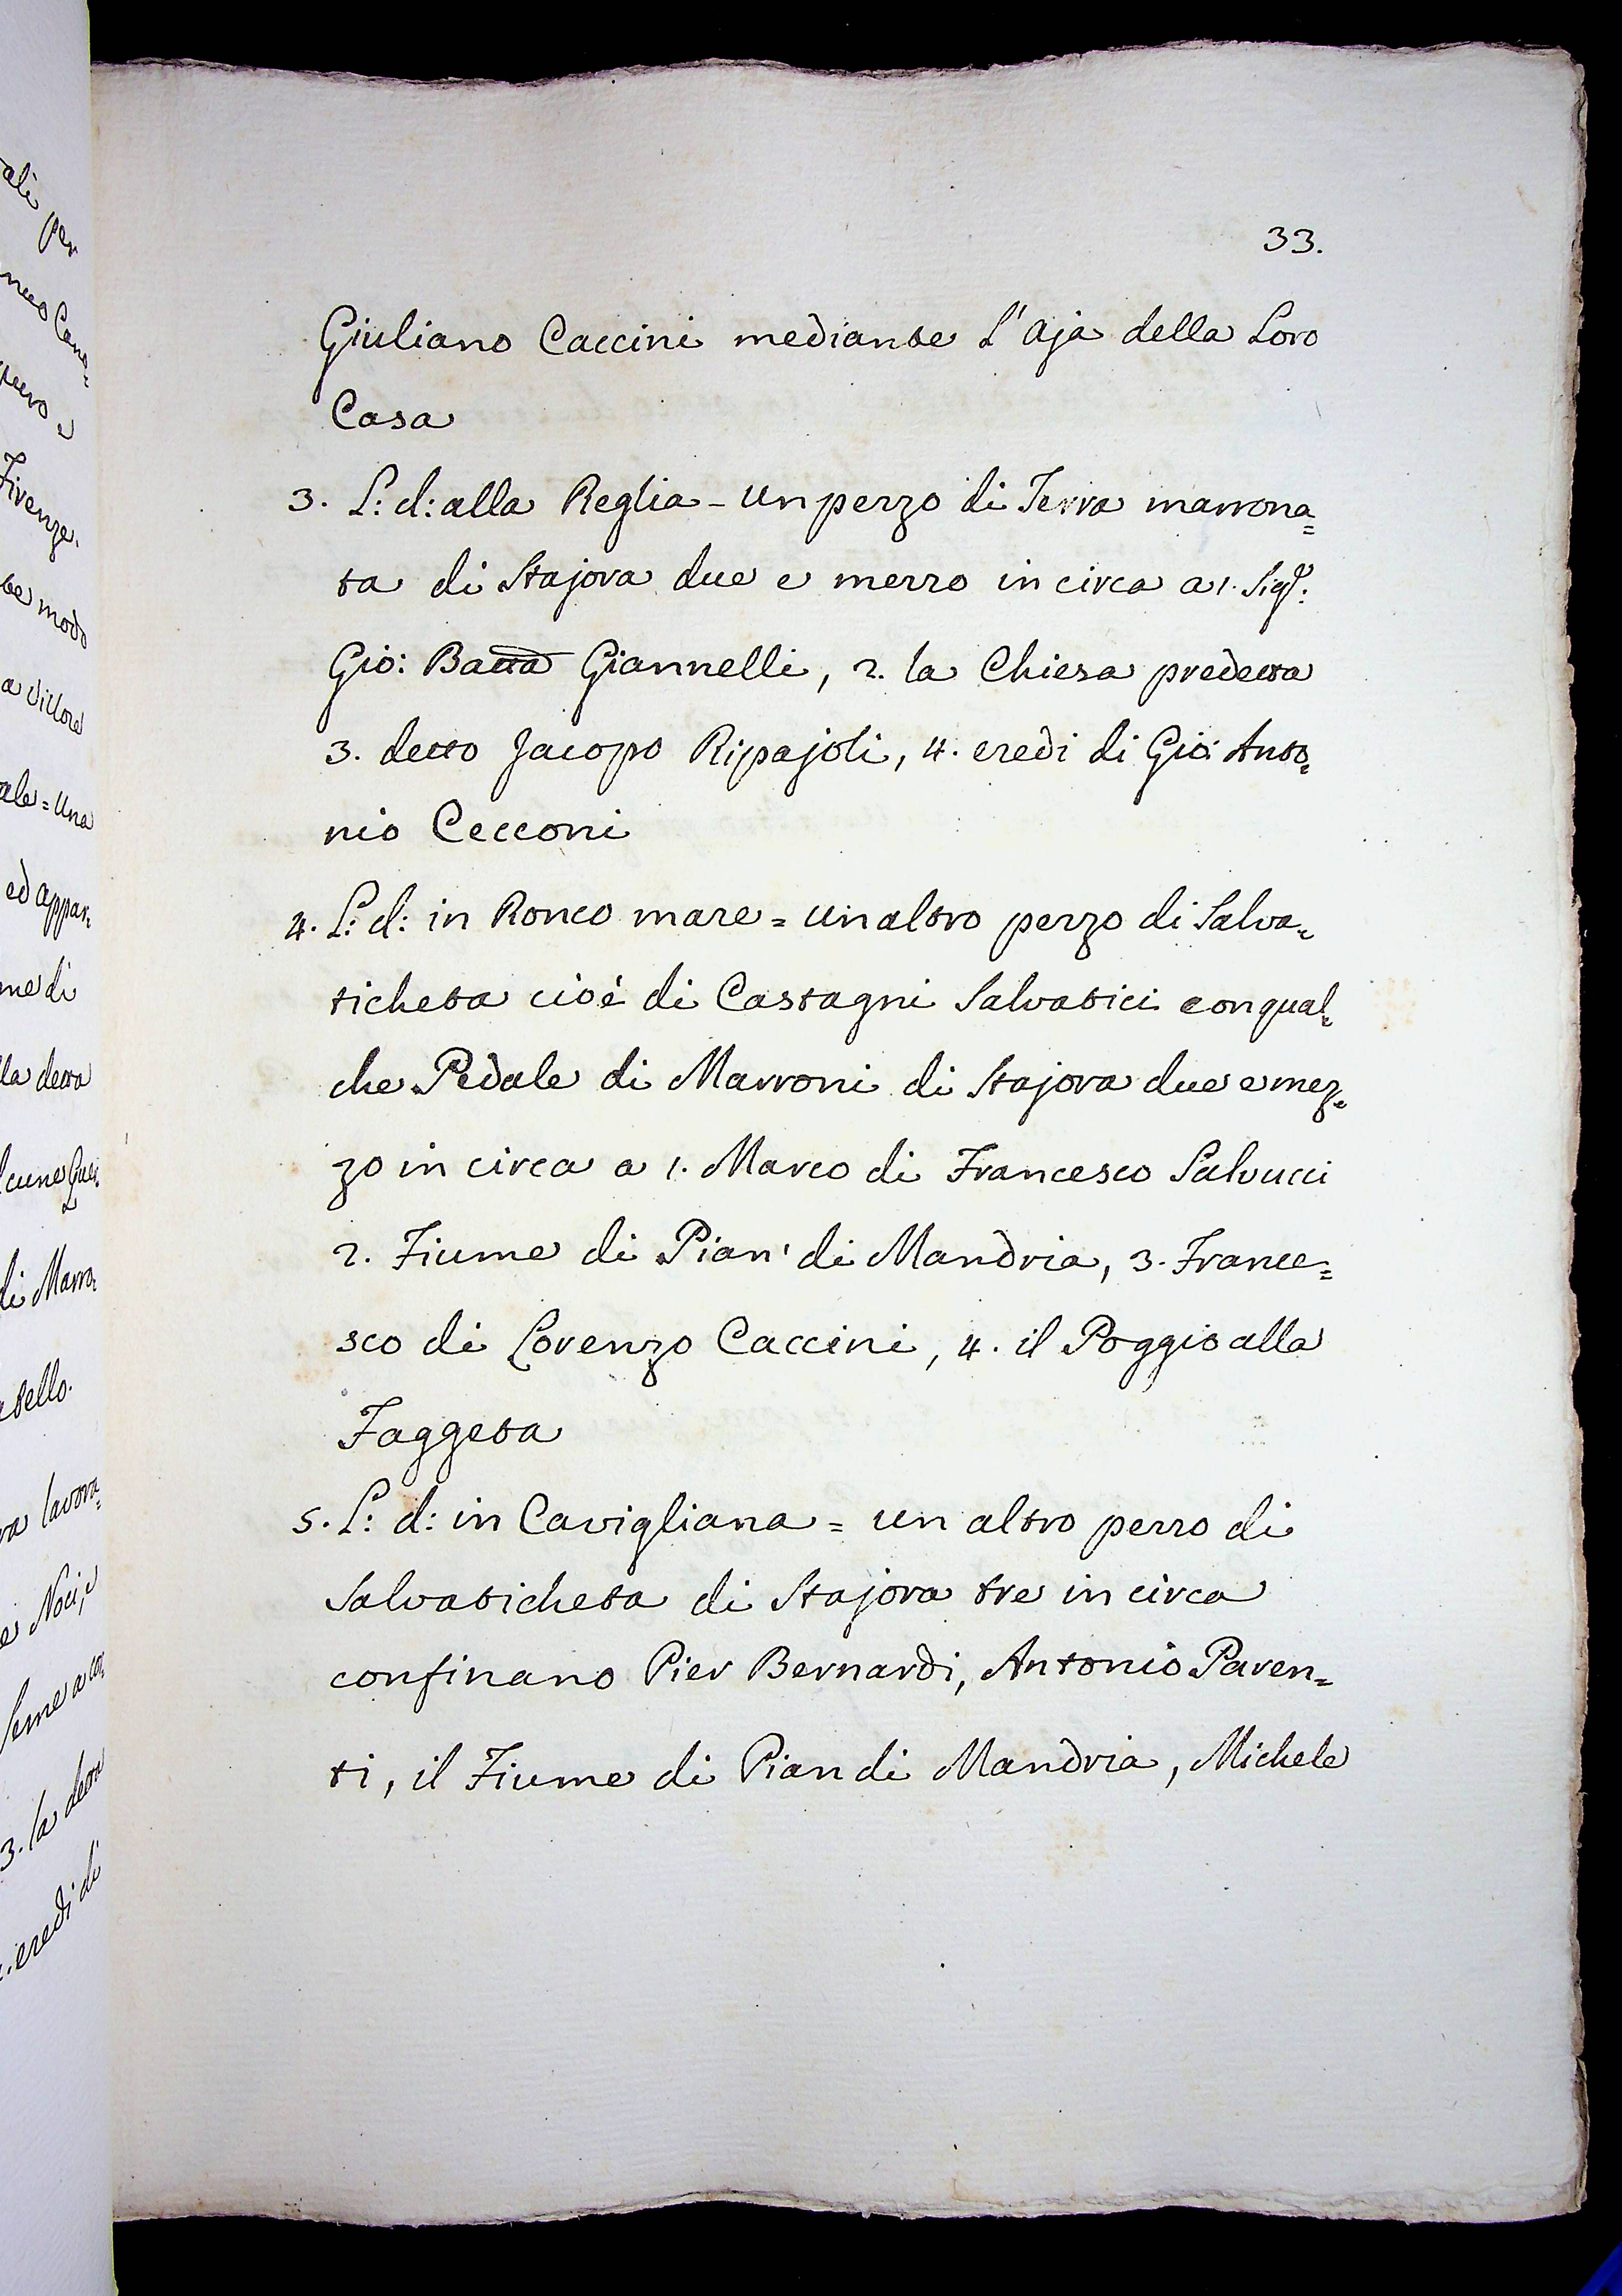 33.
Giuliano Caccini mediante L'Aja della Loro
Casa
3. L: d: alla Reglia - Un pezzo di Terra marrona=
ta di Stajora due e mezzo in circa a 1. Sigr:
Gio: Batta Giannelli, 2. la Chiesa predetta
3. detto Jacopo Ripajoli, 4. eredi di Gio: Anto=
nio Cecconi
4. L: d: in Ronco mare = Un altro pezzo di Salva=
ticheta cioè di Castagni Salvatici con qual=
che Pedale di Marroni di Stajora due e mez=
zo in circa a 1. Marco di Francesco Salvucci
2. Fiume di Pian' di Mandria, 3. France=
sco di Lorenzo Caccini, 4. il Poggio alla
Faggeta
5. L: d: in Cavigliana = un altro pezzo di
Salvaticheta di Stajora tre in circa
confinano Pier Bernardi, Antonio Paren=
ti, il Fiume di Pian di Mandria, Michele